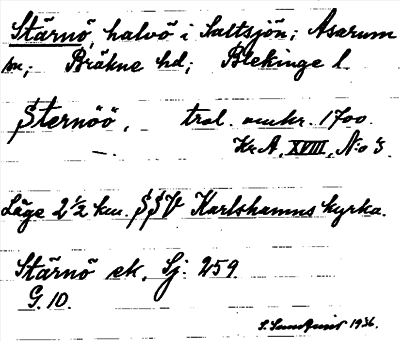 Stärnö, halvö i Saltsjön; Asarum
sn; Bräkne hd; Blekinge l.
Sternöö, trol. omkr. 1700.
Kr. A, XVIII, N:o 3.
Läge 2 1/2 km. SSV Karlshamns kyrka.
Stärnö ek. Sj. 259.
G. 10.
S. Sundquist 1936.